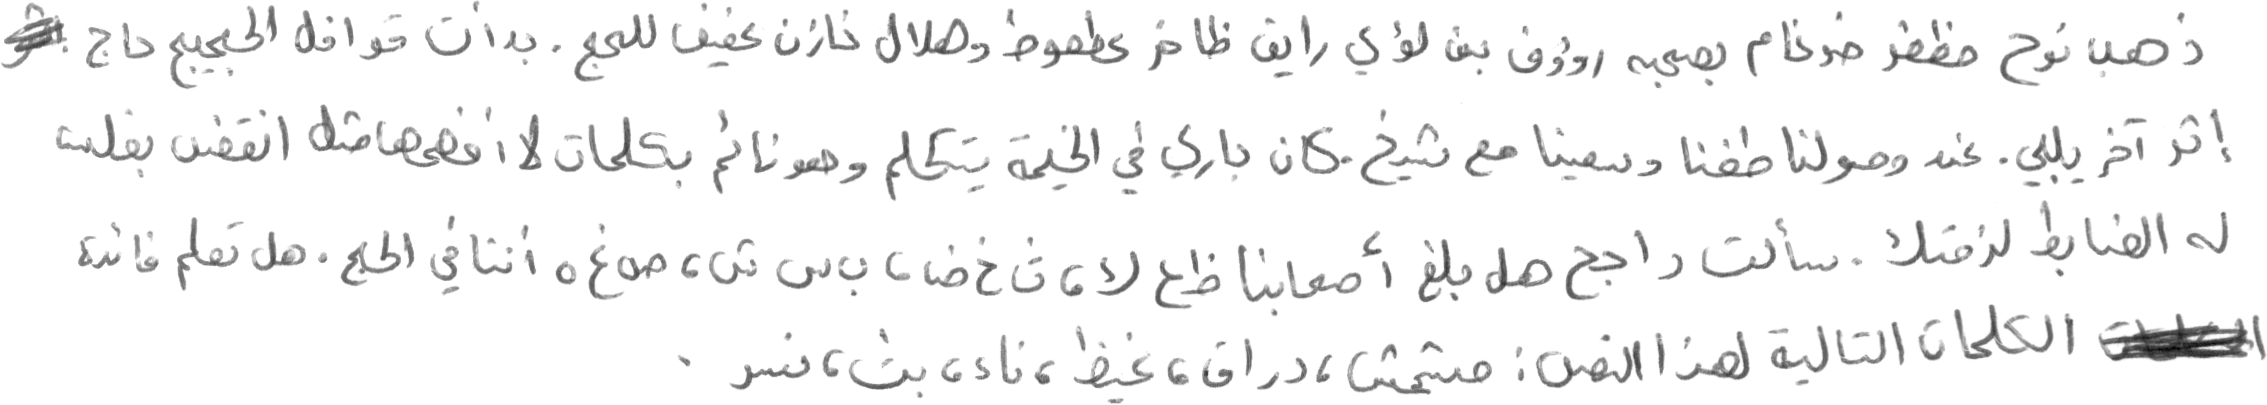 ذهب نوح مظفر ضرغام بصحبه رؤوف بن لؤي رايق ظافر محطوط وهلال خازن عفيف للحج . بدأت قوافل الحجيج حاج
إثر آخر يلبي . عند وصولنا طفنا وسعينا مع شيخ . كان باري في الخيمة يتكلم وهو نائم بكلمات لا أفهمها مثل انقض بغلس
له الضابط لزقتك . سألت راجح هل بلغ أصحابنا ظع لا ، ث خ ض ، ب س ش ، ص غ ه أننا في الحج . هل تعلم فائدة
الكلمات التالية لهذا النص : مشمش ، دراق ، غيظ ، ناء ، بث ، نسر .